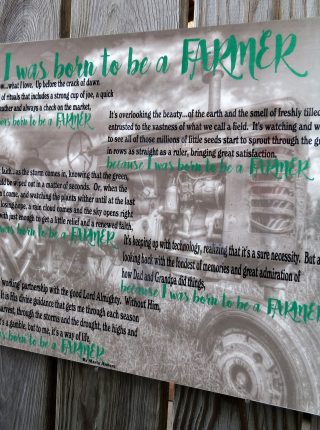 I was born to be a FARMER
...what I love. Up before the crack of dawn
of rituals that includes a strong cup of joe, a quick
and always a check on the market,
was born to be a FARMER
It's overlooking the beauty...of the earth and the smell of freshly tilled
entrusted to the vastness of what we call a field. It's watching and w
to see all of those millions of little seeds start to sprout through the g
in rows as straight as a ruler, bringing great satisfaction.
because I was born to be a FARMER
luck...as the storm comes in, knowing that the green,
be wiped out in a matter of seconds. Or, when the
come, and watching the plants wither until at the last
losing hope, a rain cloud comes and the sky opens right
with just enough to get a little relief and a renewed faith.
was born to be a FARMER
It's keeping up with technology, realizing that it's a sure necessity. But a
looking back with the fondest of memories and great admiration of
how Dad and Grandpa did things,
because I was born to be a FARMER
working partnership with the good Lord Almighty. Without Him,
it is His divine guidance that gets me through each season
harvest, through the storms and the drought, the highs and
it's a gamble, but to me, it's a way of life,
was born to be a FARMER
By Marla